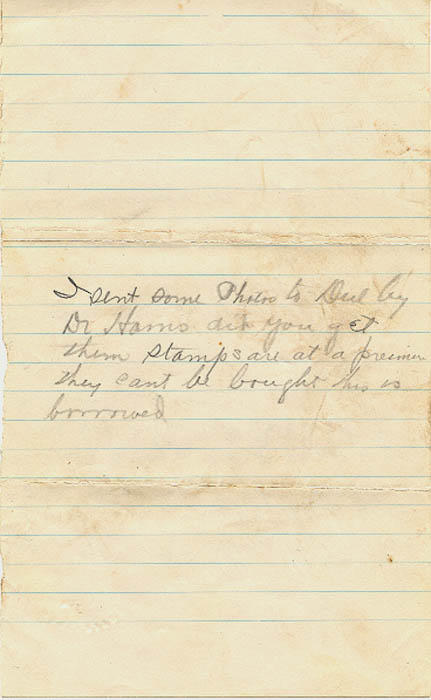 I sent some Photos to Dud by
Dr Harris did you get
them stamps are at a premium
they cant be bought this is
borrowed